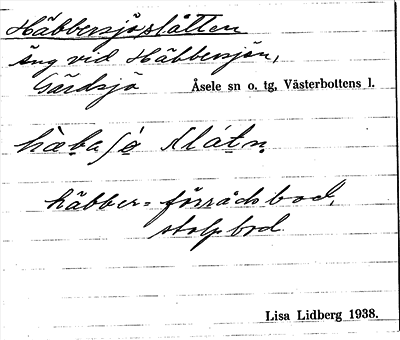 Häbbersjöslåtten
äng vid Häbbersjön,
Gärdsjö Åsele sn o. tg, Västerbottens l.
häbber = förrådsbod,
stolpbod.
Lisa Lidberg 1938.